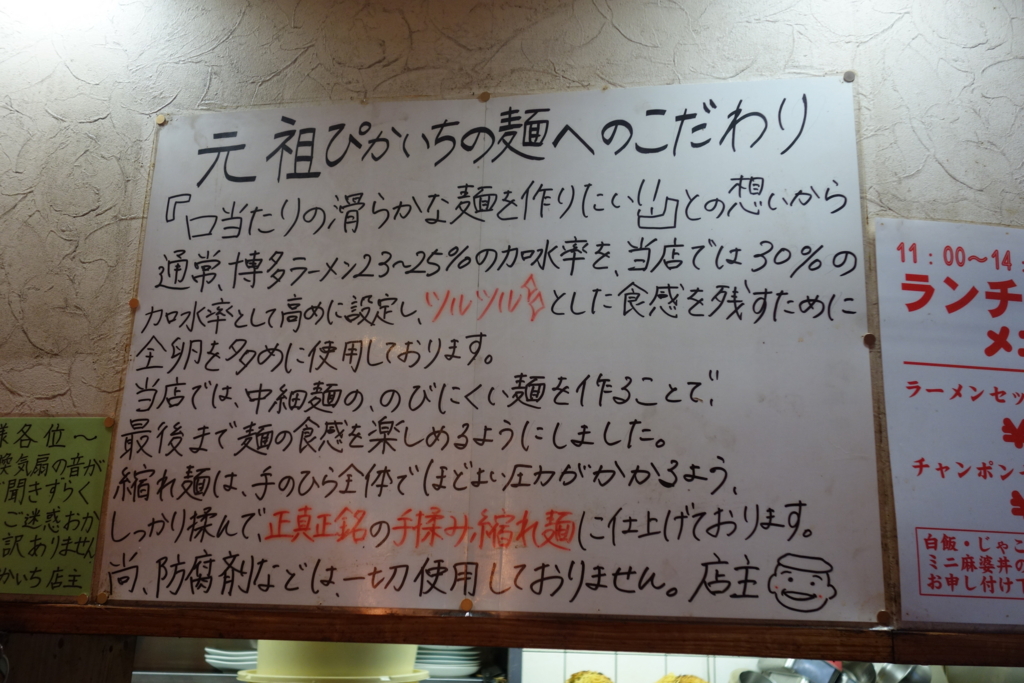 元祖ぴかいちの麺へのこだわり
『口当たりの滑らかな麺を作りたい!!』との想いから
通常、博多ラーメン23~25%の加水率を、当店では30%の
加水率として高めに設定し、ツルツルとした食感を残すために
全卵を多めに使用しております。
当店では、中細麺の、のびにくい麺を作ることで、
最後まで麺の食感を楽しめるようにしました。
縮れ麺は、手のひら全体でほどよい圧力がかかるよう、
しっかり揉んで、正真正銘の手揉み縮れ麺に仕上げております。
尚、防腐剤などは、一切使用しておりません。店主
様各位~
換気扇の音が
聞きずらく
ご迷惑おか
訳ありません
かいち店主
11:00~14
ランチ
メ
ラーメンセッ
チャンポン
白飯・じゃこ
ミニ麻婆丼の
お申し付け下